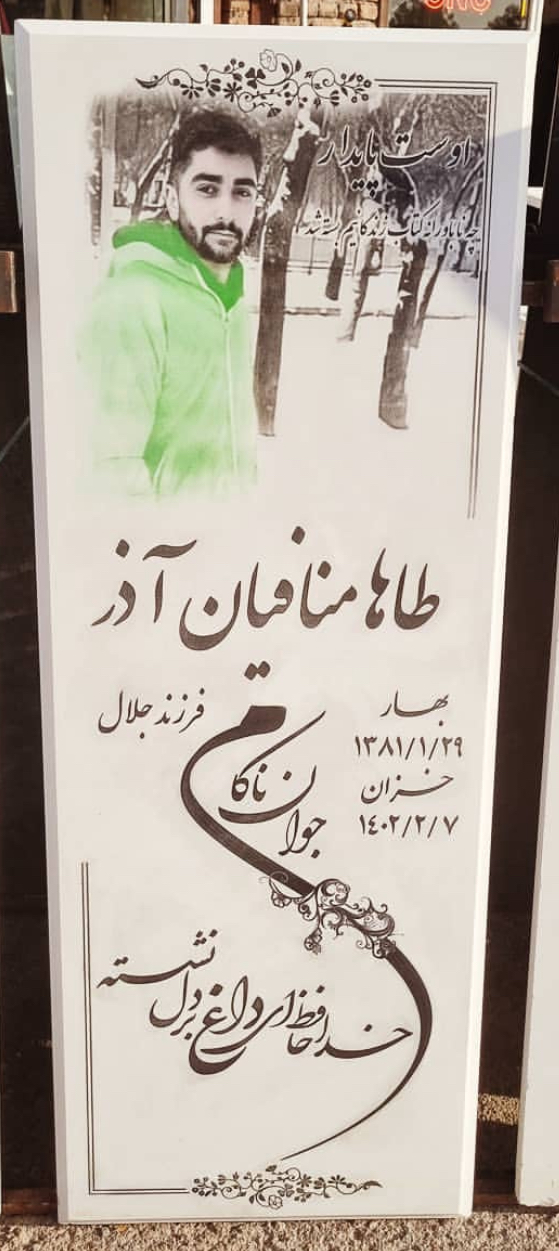 اوست پایدار
چه ناباورانه کتاب زندگانیم بسته شد
طاها منافیان آذر
فرزند جلال
جوان ناکام
بهار
۱۳۸۱/۱/۲۹
خزان
۱۴۰۲/۲/۷
خداحافظ ای داغ بر دل نشسته